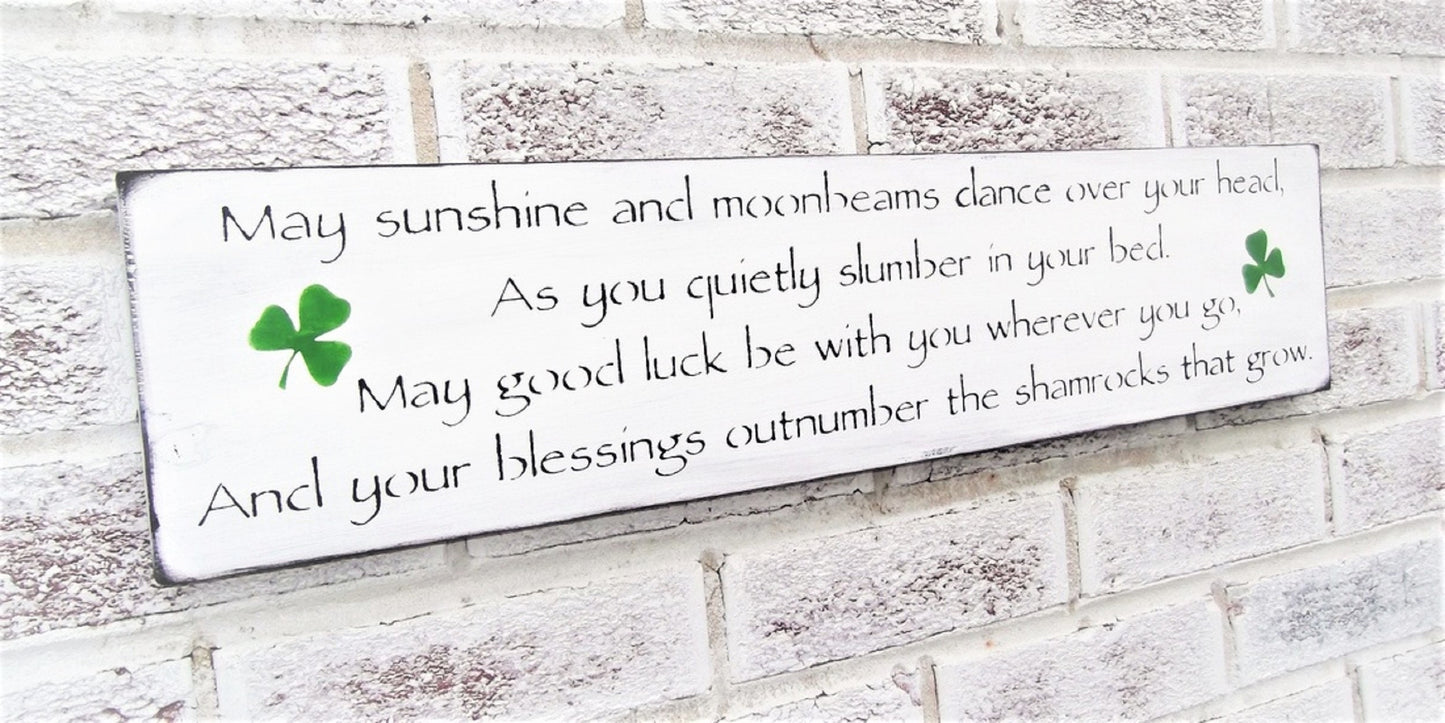 May sunshine and moonbeams dance over your head,
As you quietly slumber in your bed.
May good luck be with you wherever you go,
And your blessings outnumber the shamrocks that grow.